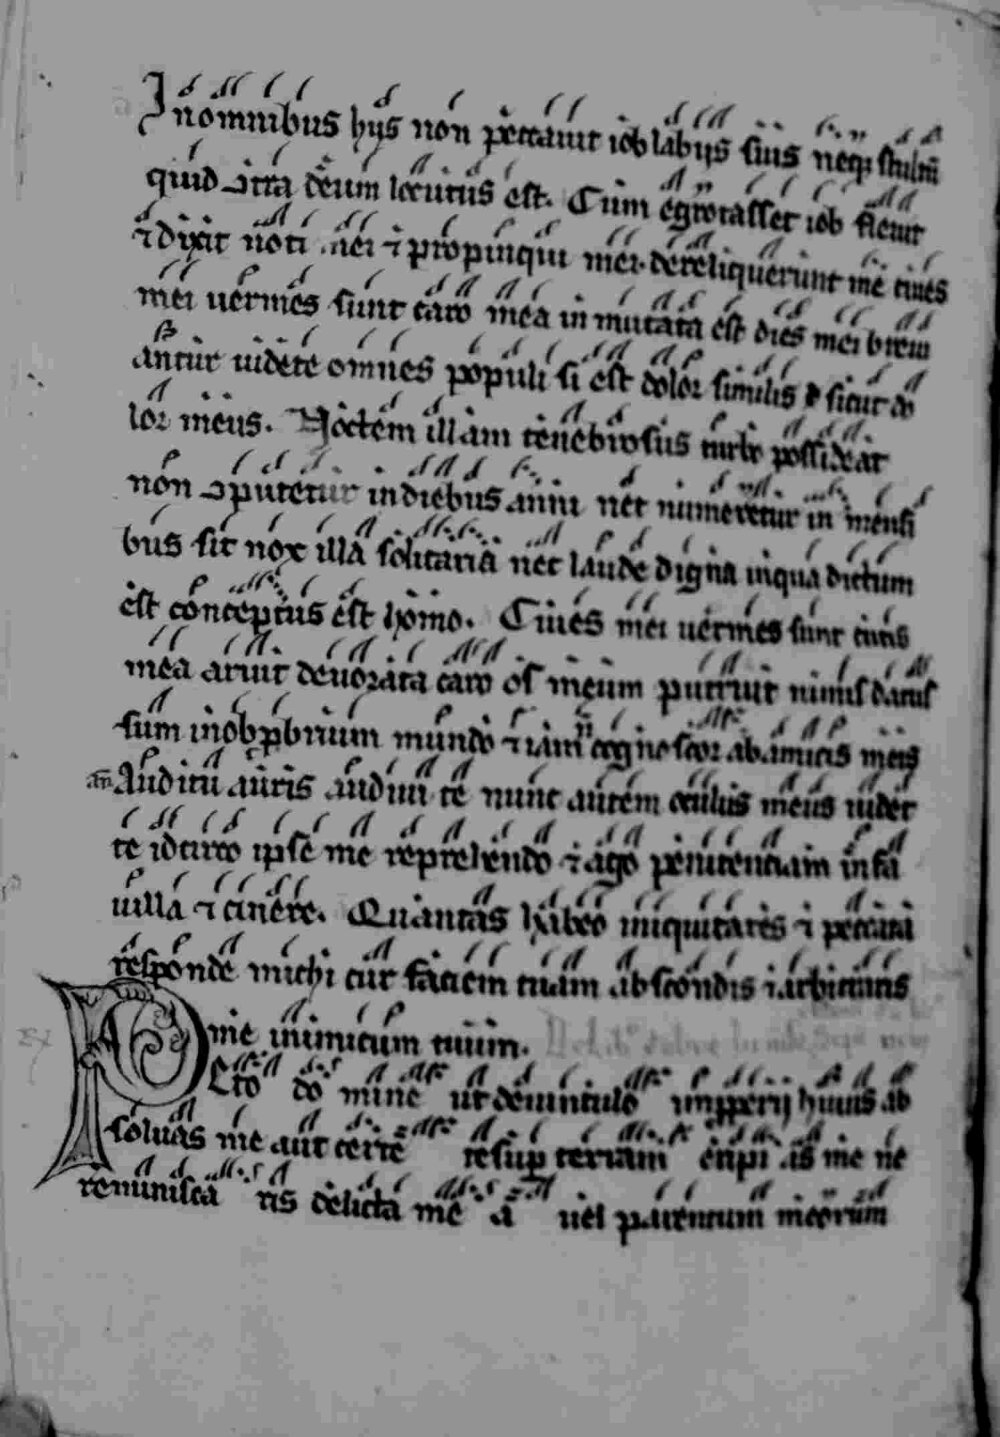 In omnibus hijs non peccauit iob labijs suis neqꝫ stultū
quid ɔtra deum locutus est. Cum egrotasset iob fleuit
⁊ dixit noti mei ⁊ propinqui mei dereliquerunt me ciues
mei uermes sunt caro mea inmutata est dies mei breui
antur uidete omnes populi si est dolor similis sicut do
lor meus. Noctem illam tenebrosus turbo possideat
non ɔputetur in diebus anni nec numeretur in mensi
bus sit nox illa solitaria nec laude digna in qua dictum
est conceptus est homo. Ciues mei uermes sunt cutis
mea aruit deuorata caro os meum putruit nimis datus
sum in obꝓbrium mundo ⁊ iam cognoscor ab amicis meis
an̄ Auditu auris audiui te nunc autem oculus meus uidet
te idcirco ipse me reprehendo ⁊ ago penitentiam in fa
uilla ⁊ cinere. Quantas habeo iniquitates ⁊ peccata
responde michi cur faciem tuam abscondis ⁊ arbitraris
me inimicum tuum.
Peto domine ut de uinculo improperij huius ab
soluas me aut certe resuꝑ terram eripias me ne
reminiscaris delicta mea uel parentum meorum